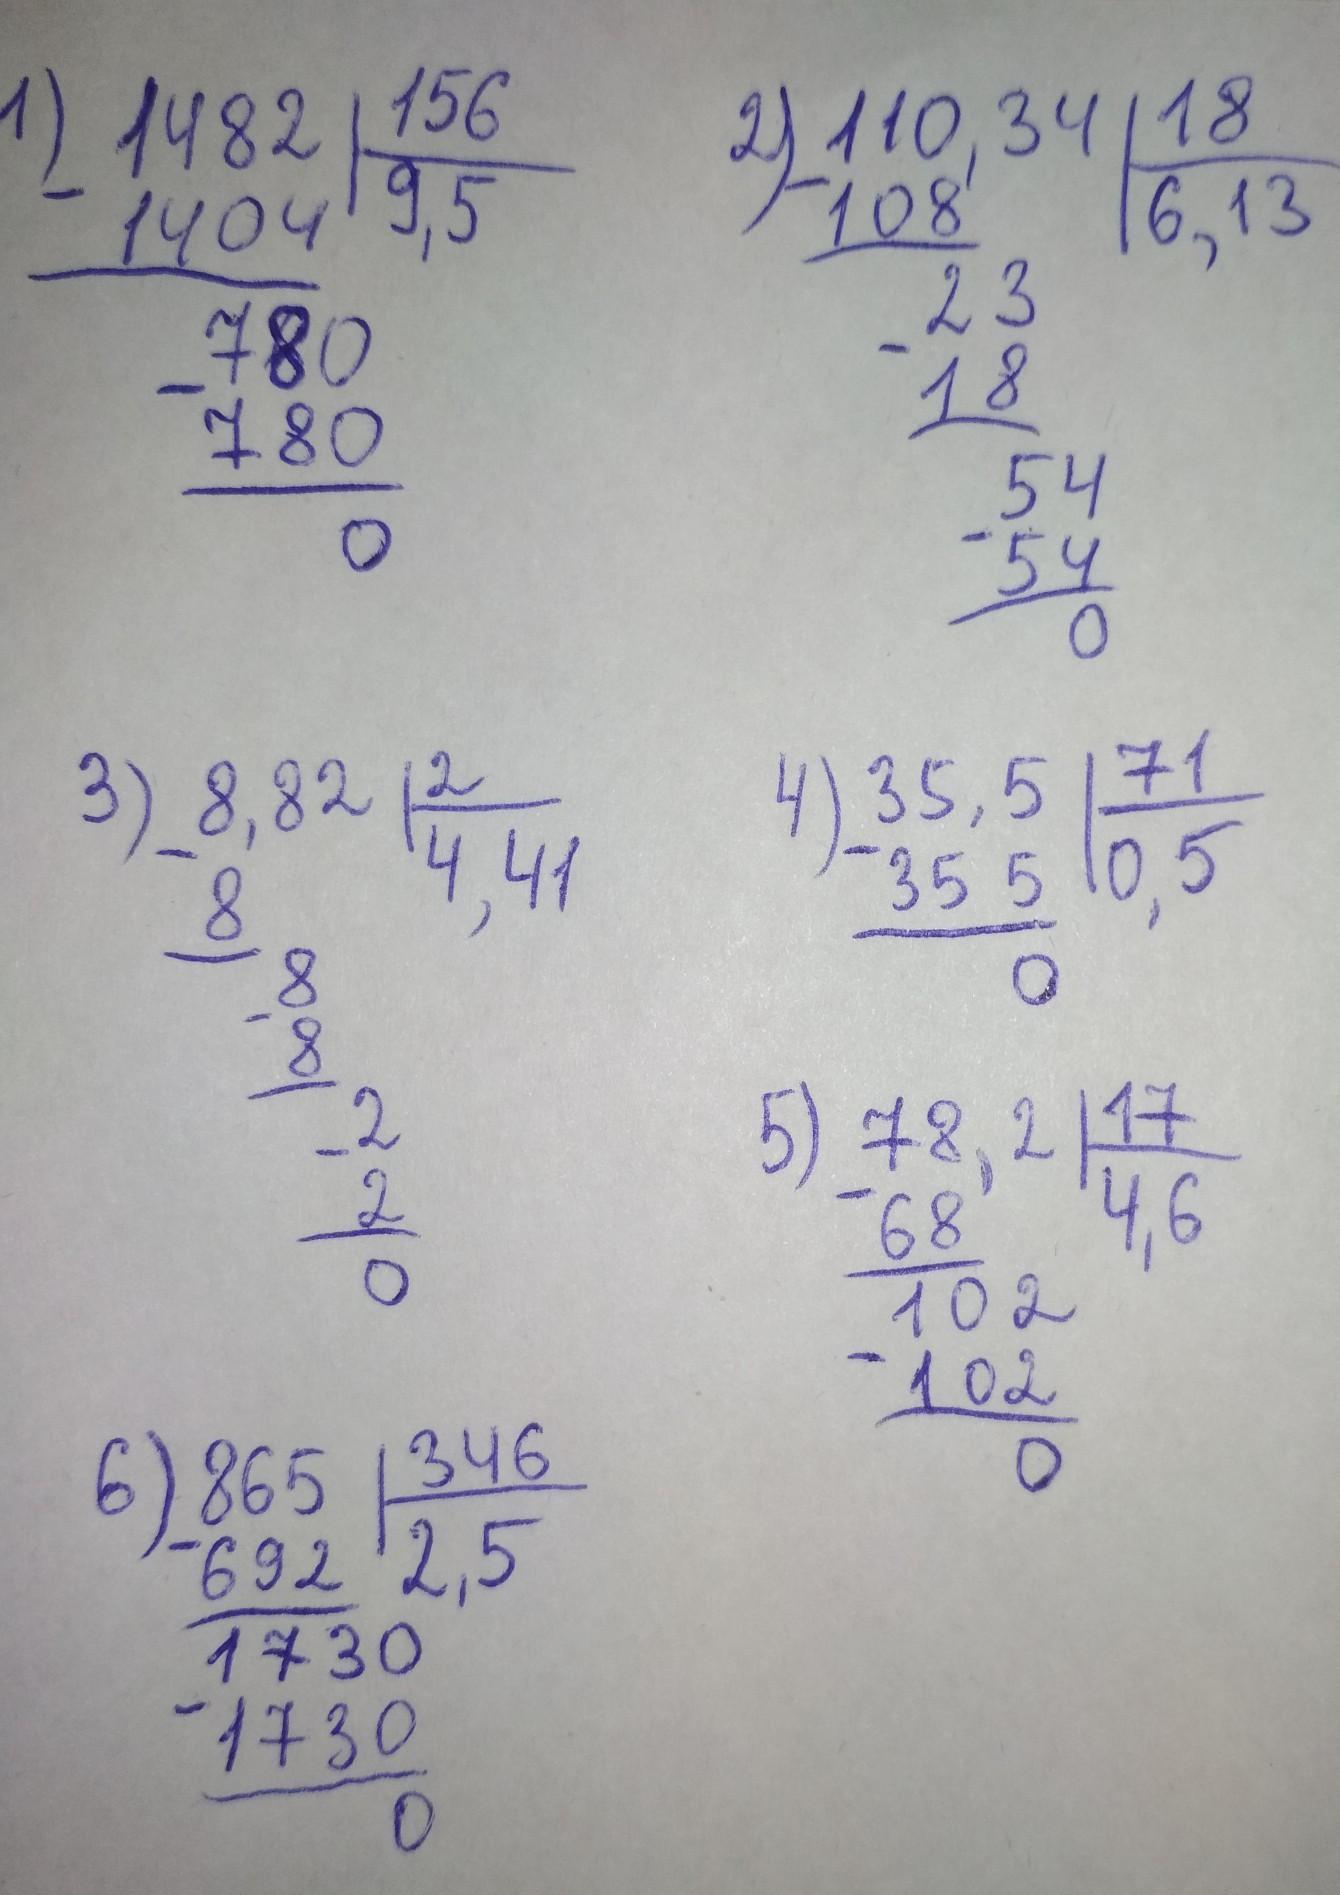 1) 1482 | 156
- 1404 | 9,5
- 780
780
0
2) 110,34 | 18
- 108 | 6,13
23
- 18
54
- 54
0
3) 8,82 | 2
- 8 | 4,41
8
- 8
2
- 2
0
4) 35,5 | 71
- 355 | 0,5
0
5) 78,2 | 17
- 68 | 4,6
102
- 102
0
6) 865 | 346
- 692 | 2,5
1730
- 1730
0